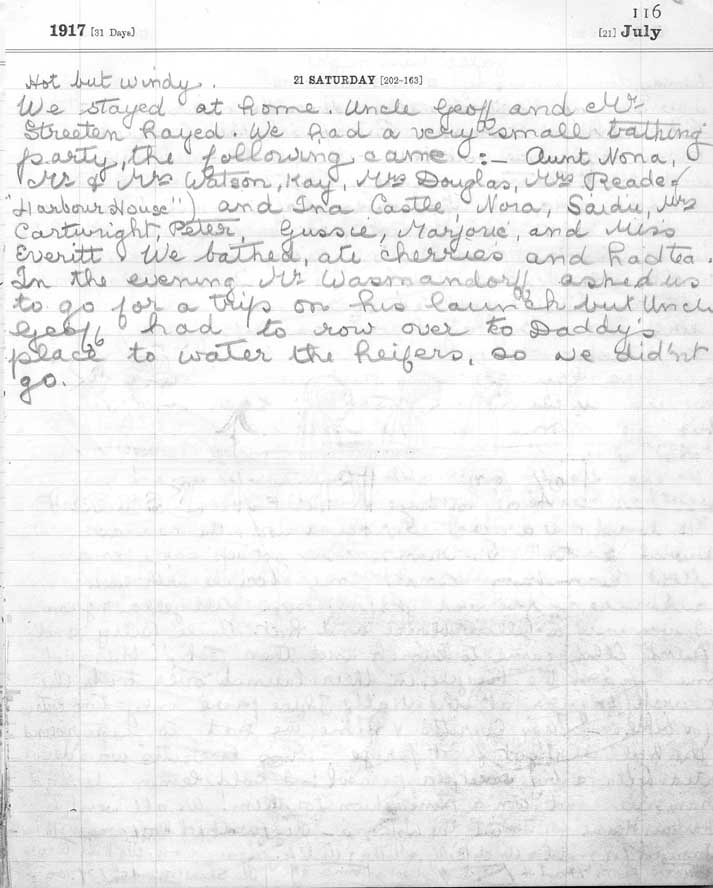 116
1917 [31 Days] [21] July
21 SATURDAY [202-163]
Hot but windy.
We stayed at home. Uncle Geoff and Mr
Streeten hayed. We had a very small bathing
party, the following came :- Aunt Nona,
Mr & Mrs Watson, Kay, Mrs Douglas, Mrs Reade (
"Harbour House") and Ina Castle, Nora, Mrs
Cartwright, Peter, Gussie, Marjorie, and Miss
Everitt. We bathed, ate cherries and had tea.
In the evening Mr Wasmandorff asked us
to go for a trip on his launch but Uncle
Geoff had to row over to Daddy's
place to water the heifers, so we did'nt
go.